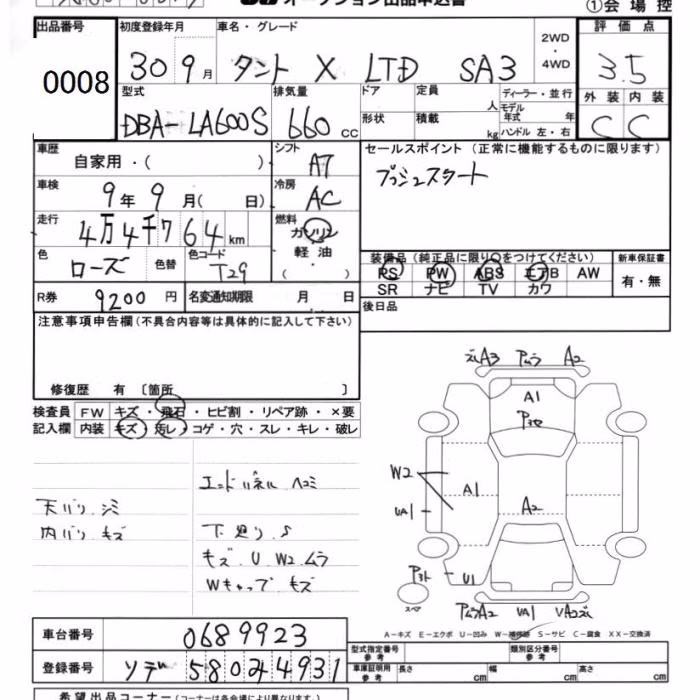 オークション出品申込書
①会場控
出品番号 0008
初度登録年月 30 9月
車名・グレード タント X LTD SA3
2WD・4WD
評価点 3.5
外装 C 内装 C
型式 DBA-LA600S
排気量 660cc
ドア 形状
定員 人
積載 kg
ディーラー・並行
モデル年式 年式
ハンドル 左・右
車歴 自家用・( )
シフト AT
セールスポイント (正常に機能するものに限ります)
プッシュスタート
車検 9年 9月( 日)
冷房 AC
走行 4万4千764km
燃料 ガソリン 軽油 ( ・ )
色 ローズ 色替 色コード T29
装備品 (純正品に限り○をつけてください)
PS PW ABS エアB AW
SR ナビ TV カワ
新車保証書 有・無
R券 9200円
名変通知期限 月 日
後日品
注意事項申告欄(不具合内容等は具体的に記入して下さい)
修復歴 有〔箇所 〕
検査員 FW キズ・飛石・ヒビ割・リペア跡・×要
記入欄 内装 キズ・汚レ・コゲ・穴・スレ・キレ・破レ
エンドパネル ヘコミ
天バリ シミ
内バリ キズ
下廻り S
キズ U W2 ムラ
Wキャップ キズ
A3 A2
A1
W2
UA1 A1 A2
U1
スペア
A2 UA1
A-キズ E-エクボ U-凹み W-補修跡 S-サビ C-腐食 XX-交換済
車台番号 0689923
登録番号 ソデ 580 4931
型式指定番号 参考
類別区分番号 参考
車庫証明用 参考 長さ cm 幅 cm 高さ cm
希望出品コーナー (コーナーは各会場により異なります。)